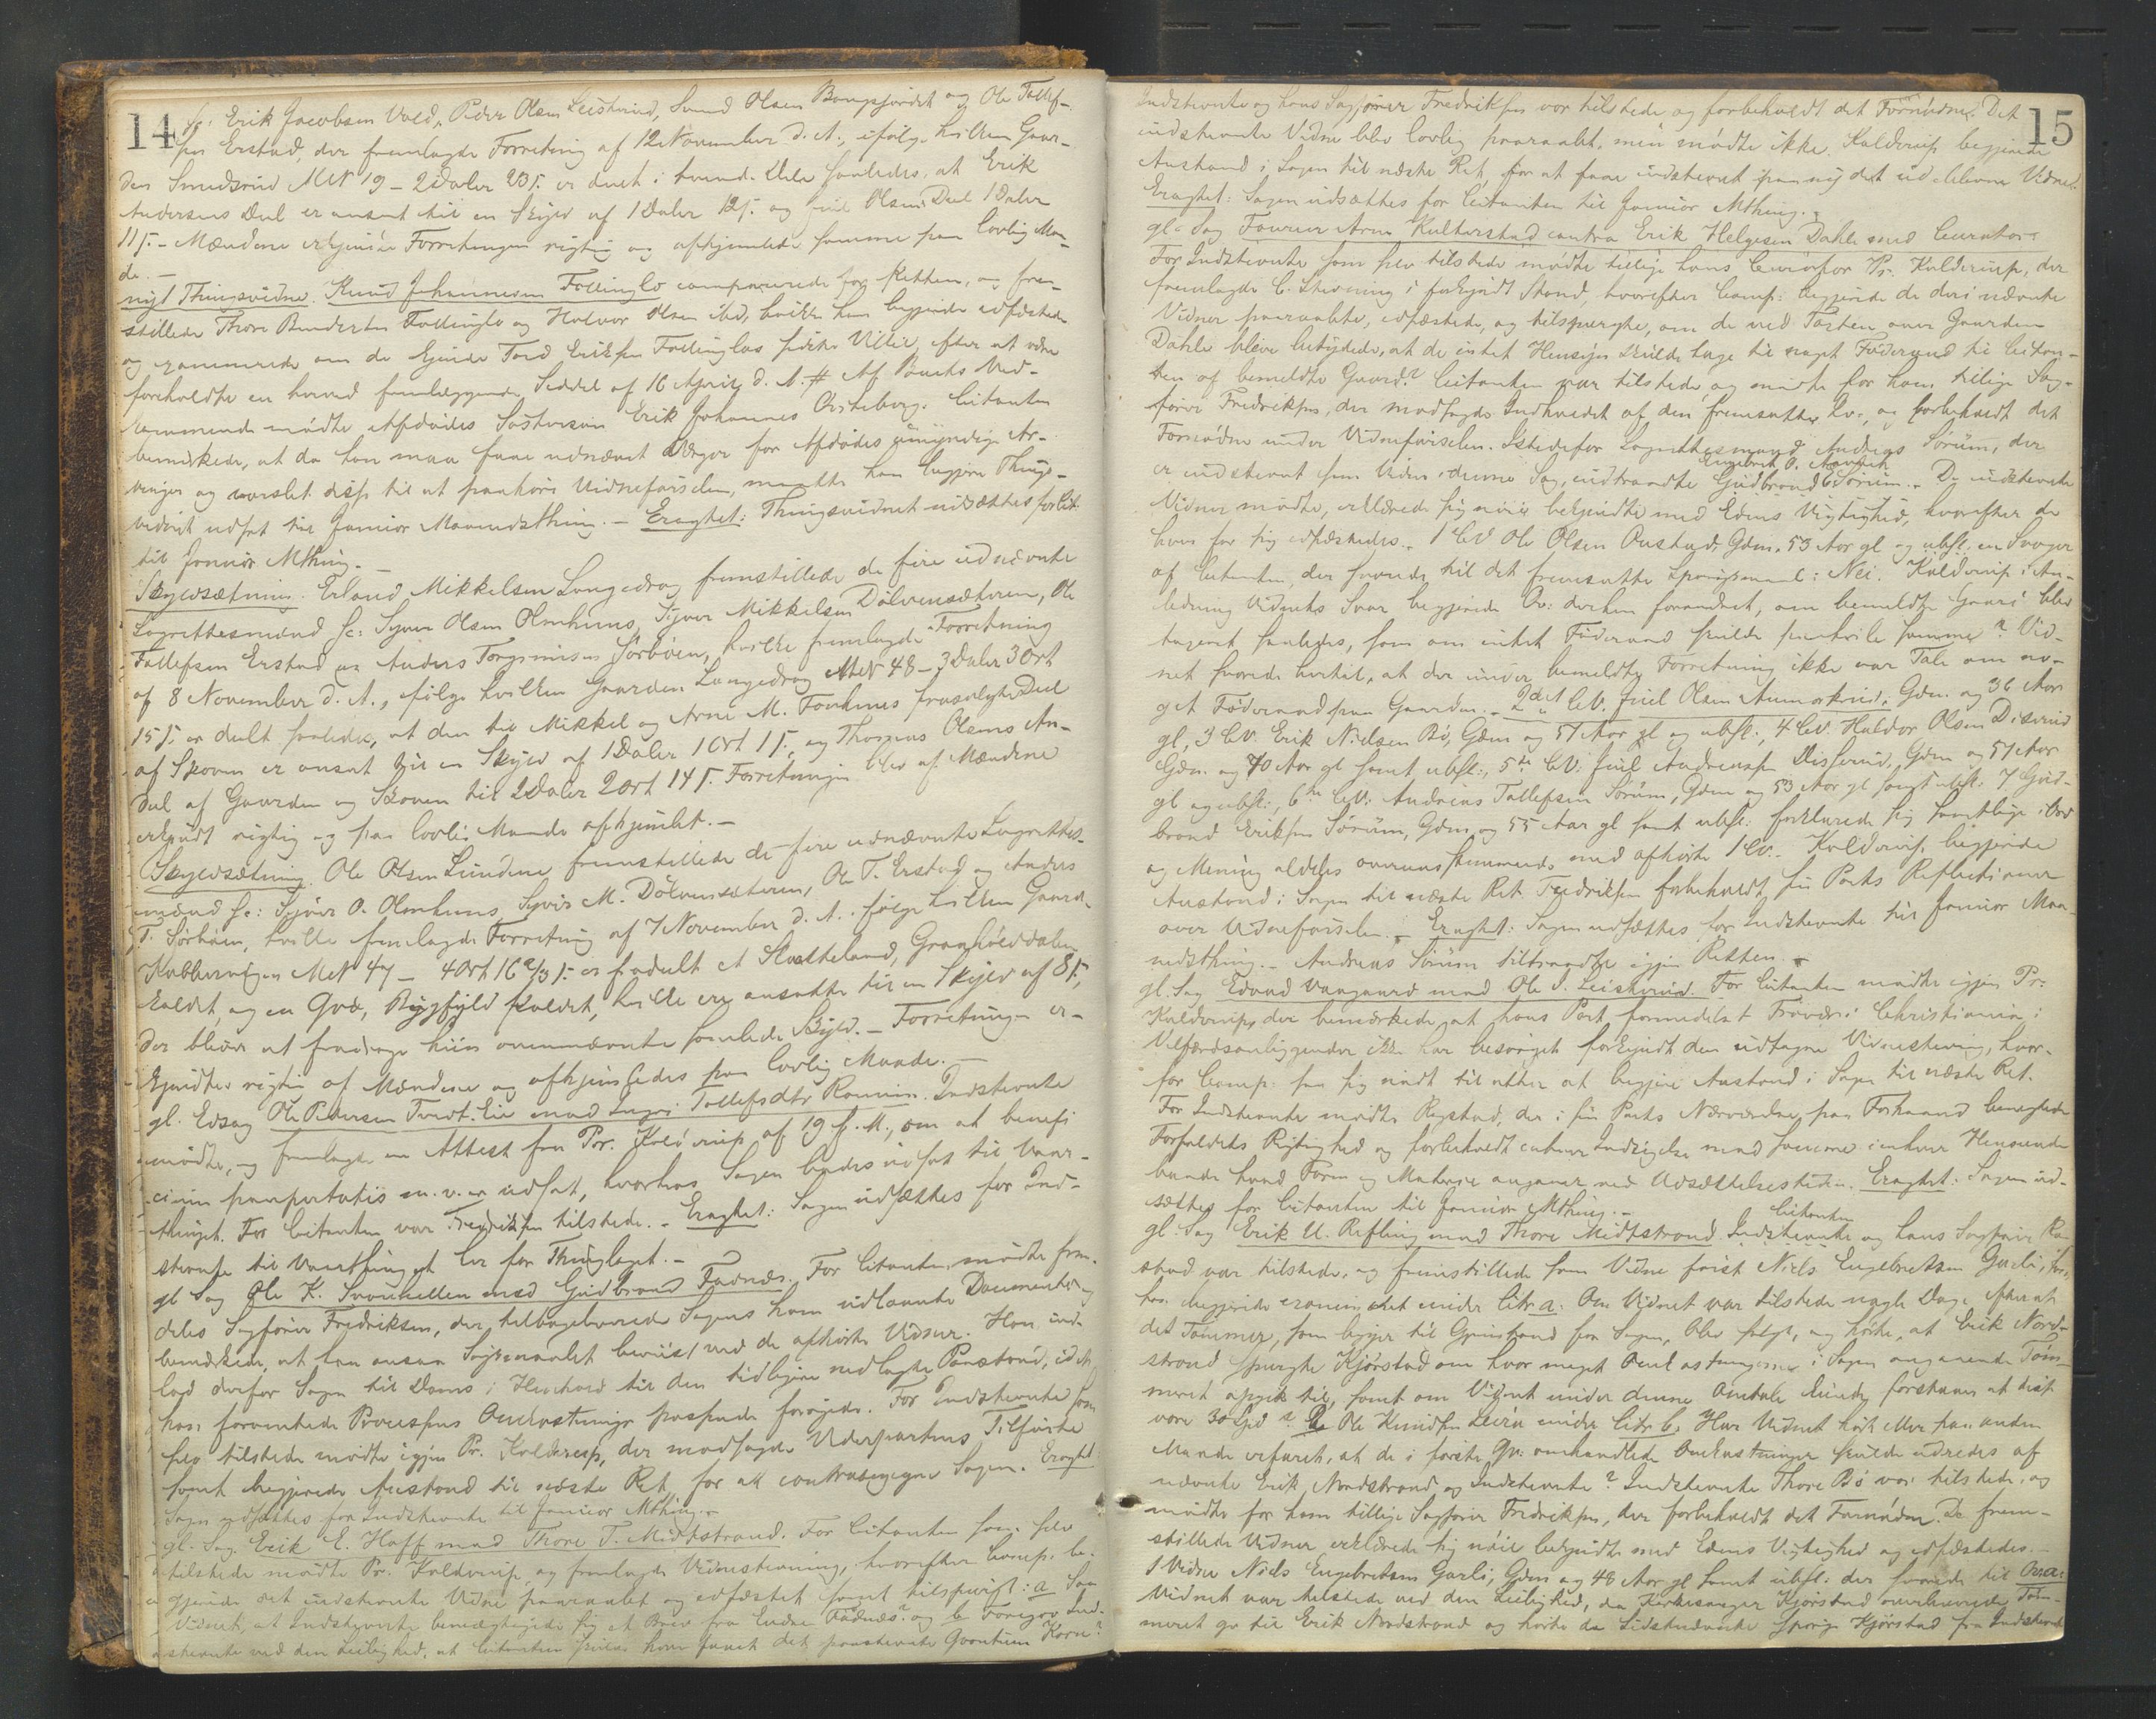 14
sc: Erik Jacobsen Vold, Peder Olsen Leistvind, Svend Olsen Bangsjordet og Ole Tollef-
sen Erstad, der fremlagde Forretning af 12 November d. A., ifølge hvilken Gaar-
den Smedsrud MN 19 – 2 Daler 23 ſ. er deelt i tvende Dele saaledes, at Erik
Andersens Deel er ansat til en Skyld af 1 Daler 12 ſ. og Juel Olsens Deel 1 Daler
11 ſ. – Mændene erkjendte Forretningen rigtig og afhjemlede samme paa lovlig Maa-
de. –
nyt Thingsvidne. Knud Johannesen Follinglo comparerede for Retten, og frem-
stillede Thore Bendexten Follinglo og Halvor Olsen ibd, hvilke han begjerede edfæstede
og examinerede om de kjende Tord Eriksen Follinglos sidste Villie, efter at være
foreholdte en herved fremlæggende Seddel af 16 April d. A. # Af Boets Ved-
kommende mødte Afdødes Søstersøn Erik Johannes Austeberg. Citanten
bemærkede, at da han maa faae udnævnt Værger for Afdødes umyndige Ar-
vinger og varslet disse til at paahøre Vidneførselen, maatte han begjære Things-
vidnet udsat til Januar Maanedsthing. – Eragtet: Thingsvidnet udsættes for Cit.
til Januar Mthing. –
Skyldsætning. Erland Mikkelsen Langedrag fremstillede de fire udnævnte
Lagrettesmænd sc: Syver Olsen Olmhuus, Syver Mikkelsen Dölvensæteren, Ole
Tollefsen Erstad og Anders Torgrimsen Sørbøen, hvilke fremlagde Forretning
af 8 November d. A., følge hvilken Gaarden Langedrag MN 48 – 3 Daler 3 Ort
15 ſ. er deelt saaledes, at den til Mikkel og Arne M. Fonhuus frasolgte Deel
af Skoven er ansat til en Skyld af 1 Daler 1 Ort 1 ſ. og Thomas Olsens An-
deel af Gaarden og Skoven til 2 Daler 2 Ort 14 ſ. Forretningen blev af Mændene
erkjendt rigtig og paa lovlig Maade afhjemlet. –
Skyldsætning. Ole Olsen Lundene fremstillede de fire udnævnte Lagrettes-
mænd sc: Syver O. Olmhuus, Syver M. Dölvensæteren, Ole T. Erstad og Anders
T. Sørbøen, hvilke fremlagde Forretning af 7 November d. A. følge hvilken Gaard.
MN 47 – 4 Ort 16 2/3 ſ. er fradeelt et Slaatteland, Granhöiddalen
kaldet, og en Qvæ, Byggfyld kaldet, hvilke ere ansatte til en Skyld af 8 ſ.,
der bliver at fradrage hiin ovennævnte samlede Skyld. – Forretningen er-
kjendtes rigtig af Mændene og afhjemledes paa lovlig Maade. –
gl. Edsag Ole Pedersen Tveit. Eie mod Ingri Tollefsdtr Rennin. Indstevnte
mødte, og fremlagde en Attest fra Pr. Kolderup af 19 f. M., om at benefi
cium paupertatis m. v. er udsat, hvorhos Sagen bedes udsat til Vaar-
thinget. For Citanten var Fredriksen tilstede. – Eragtet: Sagen udsættes for Ind-
stevnte til Vaarthinget her for Thinglaget. –
gl. Sag Ole K. Svonhellen mod Gudbrand Fadnæs. For Citanten mødte frem-
deles Sagfører Fredriksen, der tilbageleverede Sagens ham udlaante Documenter og
bemærkede, at han ansaa Søgsmaalet beviist ved de afhørte Vidner. Han ind-
lod derfor Sagen til Doms i Henhold til den tidligere nedlagte Paastand, idet
han formentede Processens Omkostninger passende forøgede. For Indstevnte som
selv tilstede mødte igjen Pr. Kolderup, der modsagde Vederpartens Tilførte
samt begjerede Anstand til næste Ret for at contrasagsøge Sagen. Eragtet
Sagen udsættes for Indstevnte til Januar Mthing. –
gl. Sag. Erik E. Hoff mod Thore T. Midtstrand. For Citanten som selv
tilstede mødte Pr. Kolderup og fremlagde Vidnestevning, hvorefter Comp. be-
gjerede det indstevnte Vidne paaraabt og edfæstet samt tilspurgt: a Saa
Vidnet, at Indstevnte bemægtigede sig et Brev fra Endre Fadnæs? og b Foregav Ind-
stevnte ved den Leilighed, at Citanten skulde have faaet det paastevnte Qvantum Korn?
15
Indstevnte og hans Sagfører Fredriksen var tilstede og forbeholdt det Fornødne. Det
indstevnte Vidne blev lovlig paaraabt, men mødte ikke. Kolderup begjerede
Anstand i Sagen til næste Ret, for at faae indstevnt paa ny det udeblevne Vidne.
Eragtet: Sagen udsættes for Citanten til Januar Mthing. –
gl. Sag Fourer Arne Kulterstad contra Erik Helgesen Dahle med Curator.
For Indstevnte som selv tilstede mødte tillige hans Curator Pr. Kolderup, der
fremlagde C. Stevning i forkyndt Stand, hvorefter Comp: begjerede de deri nævnte
Vidner paaraabte, edfæstede, og tilspurgte, om de ved Taxten over Gaarden
Dahle bleve betydede, at de intet Hensyn skulde tage til noget Føderaad til Citan-
ten af bemeldte Gaard? Citanten var tilstede og mødte for ham tillige Sag-
fører Fredriksen, der modsagde Indholdet af den fremsatte Qv., og forbeholdt det
Fornødne under Vidneførselen. Istedetfor Lagrettesmand Andreas Sørum, der
er indstevnt som Vidne i denne Sag, indtraadte Engebret O. Gudbrand Sørum. – De indstevnte
Vidner mødte, erklærede sig nøie bekjendte med Edens Vigtighed, hvorefter de
hver for sig edfæstedes. – 1 CV Ole Olsen Oustad, Gdm. 53 Aar gl og ubsl: en Svoger
af Citanten, der svarede til det fremsatte Spørgsmaal: Nei. Kolderup i An-
ledning Vidnets Svar begjerede Qv: derhen forandret, om bemeldte Gaard blev
taxeret saaledes, som om intet Føderaad skulde paahvile samme? Vid-
net svarede hertil, at der under bemeldte Forretning ikke var Tale om no-
get Føderaad paa Gaarden. – 2det CV. Juel Olsen Aumorkrud, Gdm. og 36 Aar
gl, 3 CV. Erik Nielsen Bø, Gdm og 57 Aar gl og ubsl., 4 CV. Haldor Olsen Diserud
Gdm. og 70 Aar gl samt ubsl., 5te CV. Juel Andreassen Disserud, Gdm og 57 Aar
gl og ubsl., 6te CV: Andreas Tollefsen Sørum, Gdm og 53 Aar gl samt ubsl. 7 Gud-
brand Eriksen Sørum, Gdm og 55 Aar gl samt ubsl: forklarede sig samtlige i Ord
og Mening aldeles overensstemmende med afhørte 1 CV. – Kolderup begjerede
Anstand i Sagen til næste Ret. Fredriksen forbeholdt sin Parts Reflectioner
over Vidneførselen. – Eragtet: Sagen udsættes for Indstevnte til Januar Maa-
nedsthing. – Andreas Sørum tiltraadte igjen Retten. –
gl. Sag Edvard Vangaard mod Ole S. Leistvind. For Citanten mødte igjen Pr.
Kolderup, der bemærkede, at hans Part formedelst Fravær i Christiania i
Velfærdsanliggender ikke har besørget forkyndt den udtagne Vidnestevning, hvor-
for Comp: saa sig nødt til atter at begjere Anstand i Sagen til næste Ret.
For Indstevnte mødte Rogstad, der i sin Parts Nærværelse paa Forhaand benegtede
Forfaldets Rigtighed og forbeholdt enhver Indsigelse mod samme i enhver Henseende
baade hvad Form og Materie angaaer med Udsættelsestiden. Eragtet: Sagen ud-
sættes for Citanten til Januar Mthing. –
gl. Sag Erik U. Refling mod Thore Midtstrand. Citanten og hans Sagfører Rog-
stad var tilstede, og fremstillede som Vidne først Niels Engebretsen Garli,
han begjerede examineret under Litr a: Om Vidnet var tilstede nogle Dage efterat
det Tømmer, som ligger til Gjenstand for Sagen, blev solgt, og hørte, at Erik Nord-
strand spurgte Kjørstad om hvor meget Omkostningerne i Sagen angaaende Tøm-
meret opgik til, samt om Vidnet under denne Omtale kunde forstaae at det
vare 30 Spd? Ole Knudsen Leira under Litr b. Har Vidnet hørt eller paa anden
Maade erfaret, at de i første Qv: omhandlede Omkostninger skulde udredes af
nævnte Erik Nordstrand og Indstevnte? Indstevnte Thore Bø var tilstede, og
mødte for ham tillige Sagfører Fredriksen, der forbeholdt det Fornødne. De frem-
stillede Vidner erklærede sig nøie bekjendte med Edens Vigtighed og edfæstedes. –
1 Vidne Niels Engebretsen Garli, Gdm og 48 Aar gl samt ubsl. der svarede til Qv. a:
Vidnet var tilstede ved den Leilighed, da Kirkesanger Kjørstad overleverede Tøm-
meret til Erik Nordstrand og hørte da Sidstnævnte spørge Kjørstad fra Indstevnte